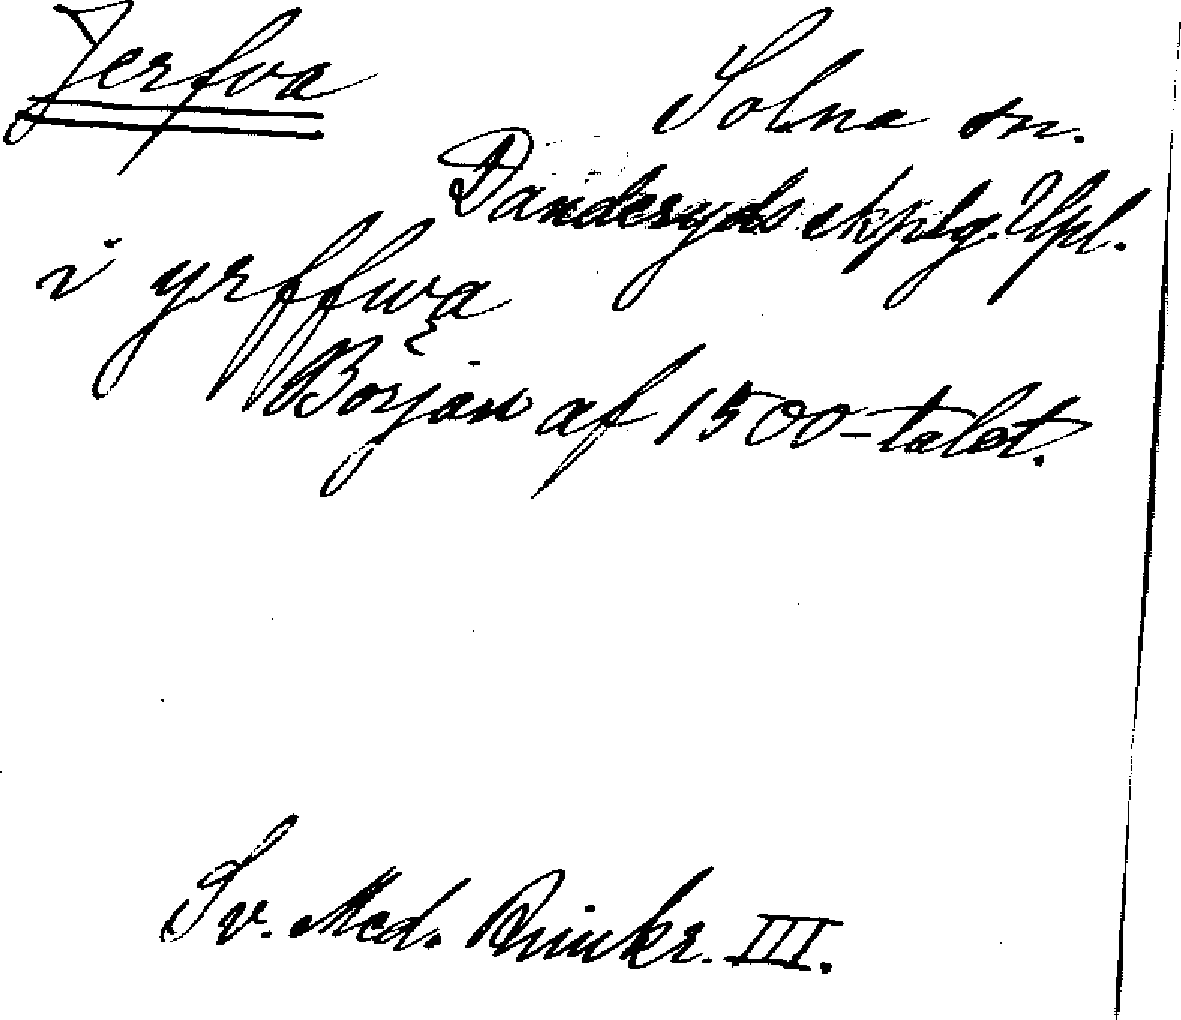 Jerfva
Solna sn.
Danderyds skplg. Upl.
i yrffwa
Början af 1500-talet.
Sv. Med. Rimkr. III.